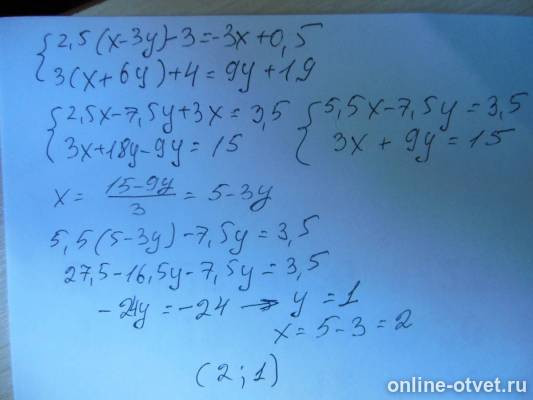 { 2,5(x-3y)-3=-3x+0,5
3(x+6y)+4=9y+19
{ 2,5x-7,5y+3x=3,5 { 5,5x-7,5y=3,5
3x+18y-9y=15 3x+9y=15
x= (15-9y)/3 =5-3y
5,5(5-3y)-7,5y=3,5
27,5-16,5y-7,5y=3,5
-24y=-24 → y=1
x=5-3=2
(2;1)
online-otvet.ru